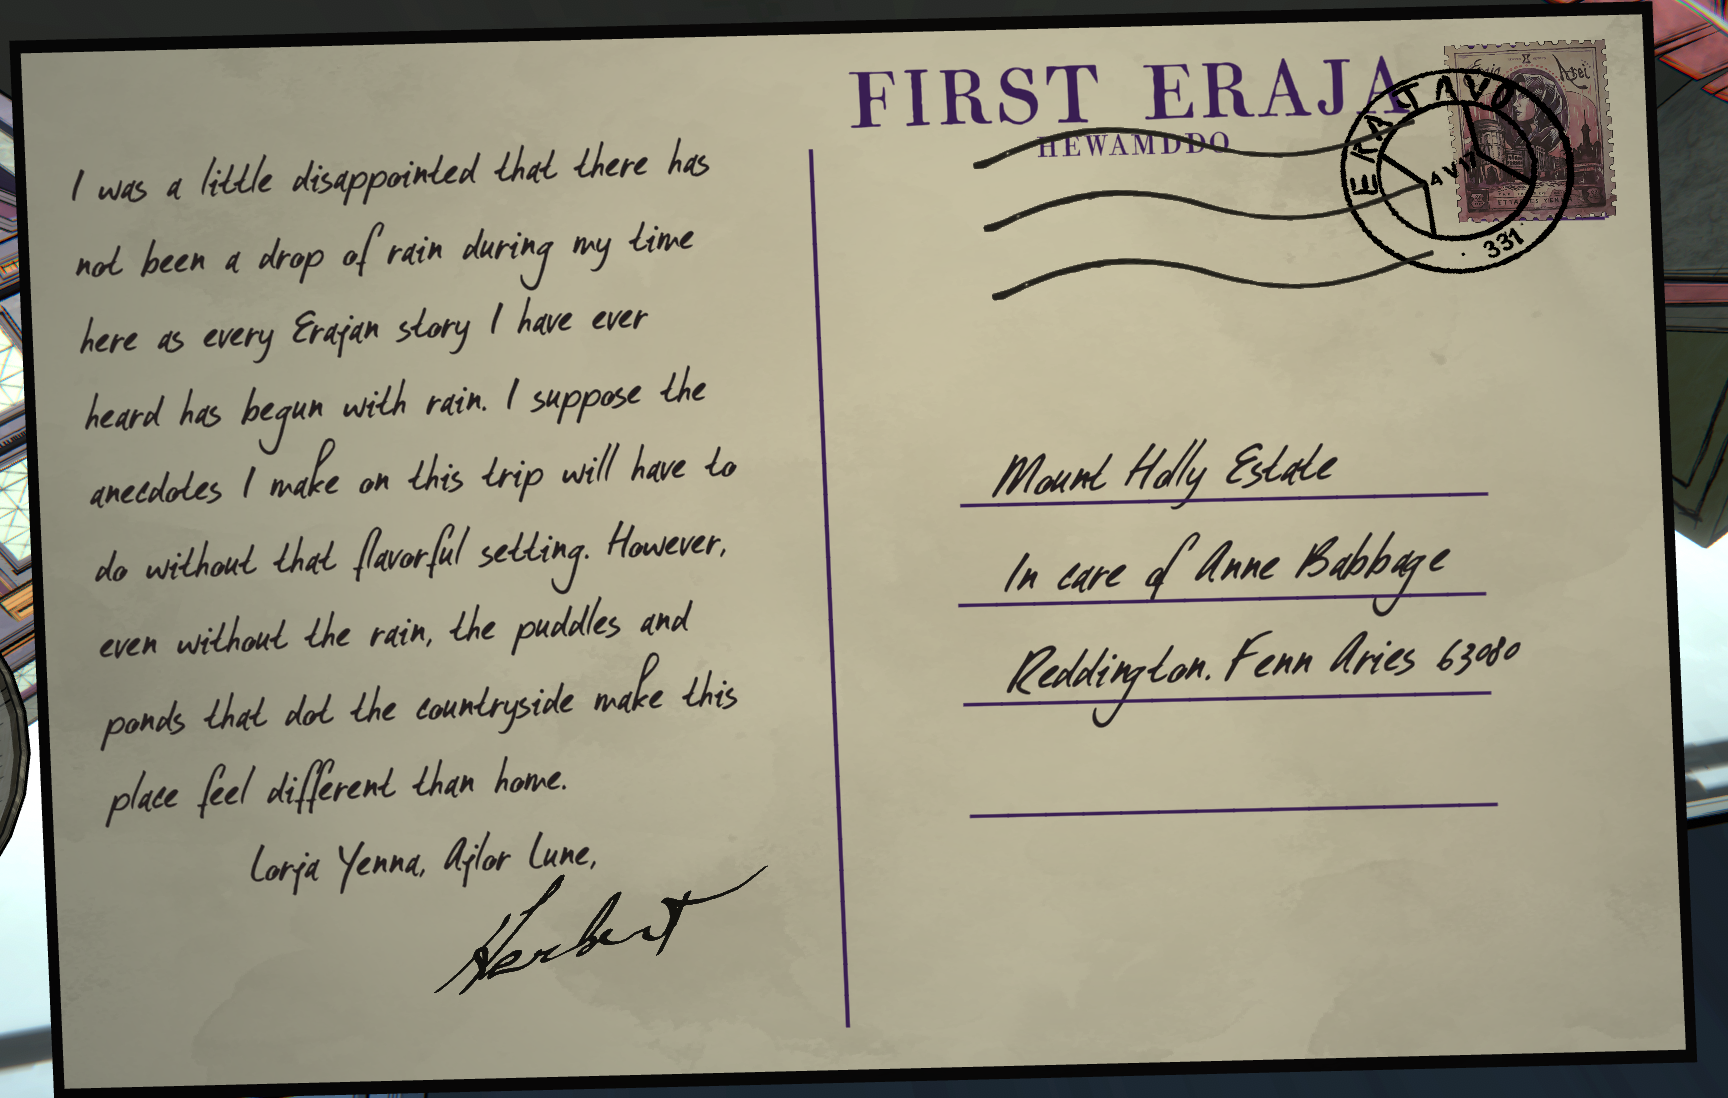 I was a little disappointed that there has
not been a drop of rain during my time
here as every Erajan story I have ever
heard has begun with rain. I suppose the
anecdotes I make on this trip will have to
do without that flavorful setting. However,
even without the rain, the puddles and
ponds that dot the countryside make this
place feel different than home.
Lorja Yenna, Ajlor Lune,
Herbert
FIRST ERAJA
HEWAMDDO
ERAJAVO
331
Mount Holly Estate
In care of Anne Babbage
Reddington. Fenn Aries 63080